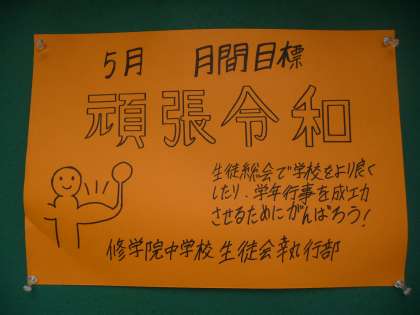 5月 月間目標
頑張令和
生徒総会で学校をより良く
したり、学年行事を成功
させるためにがんばろう!
修学院中学校 生徒会執行部